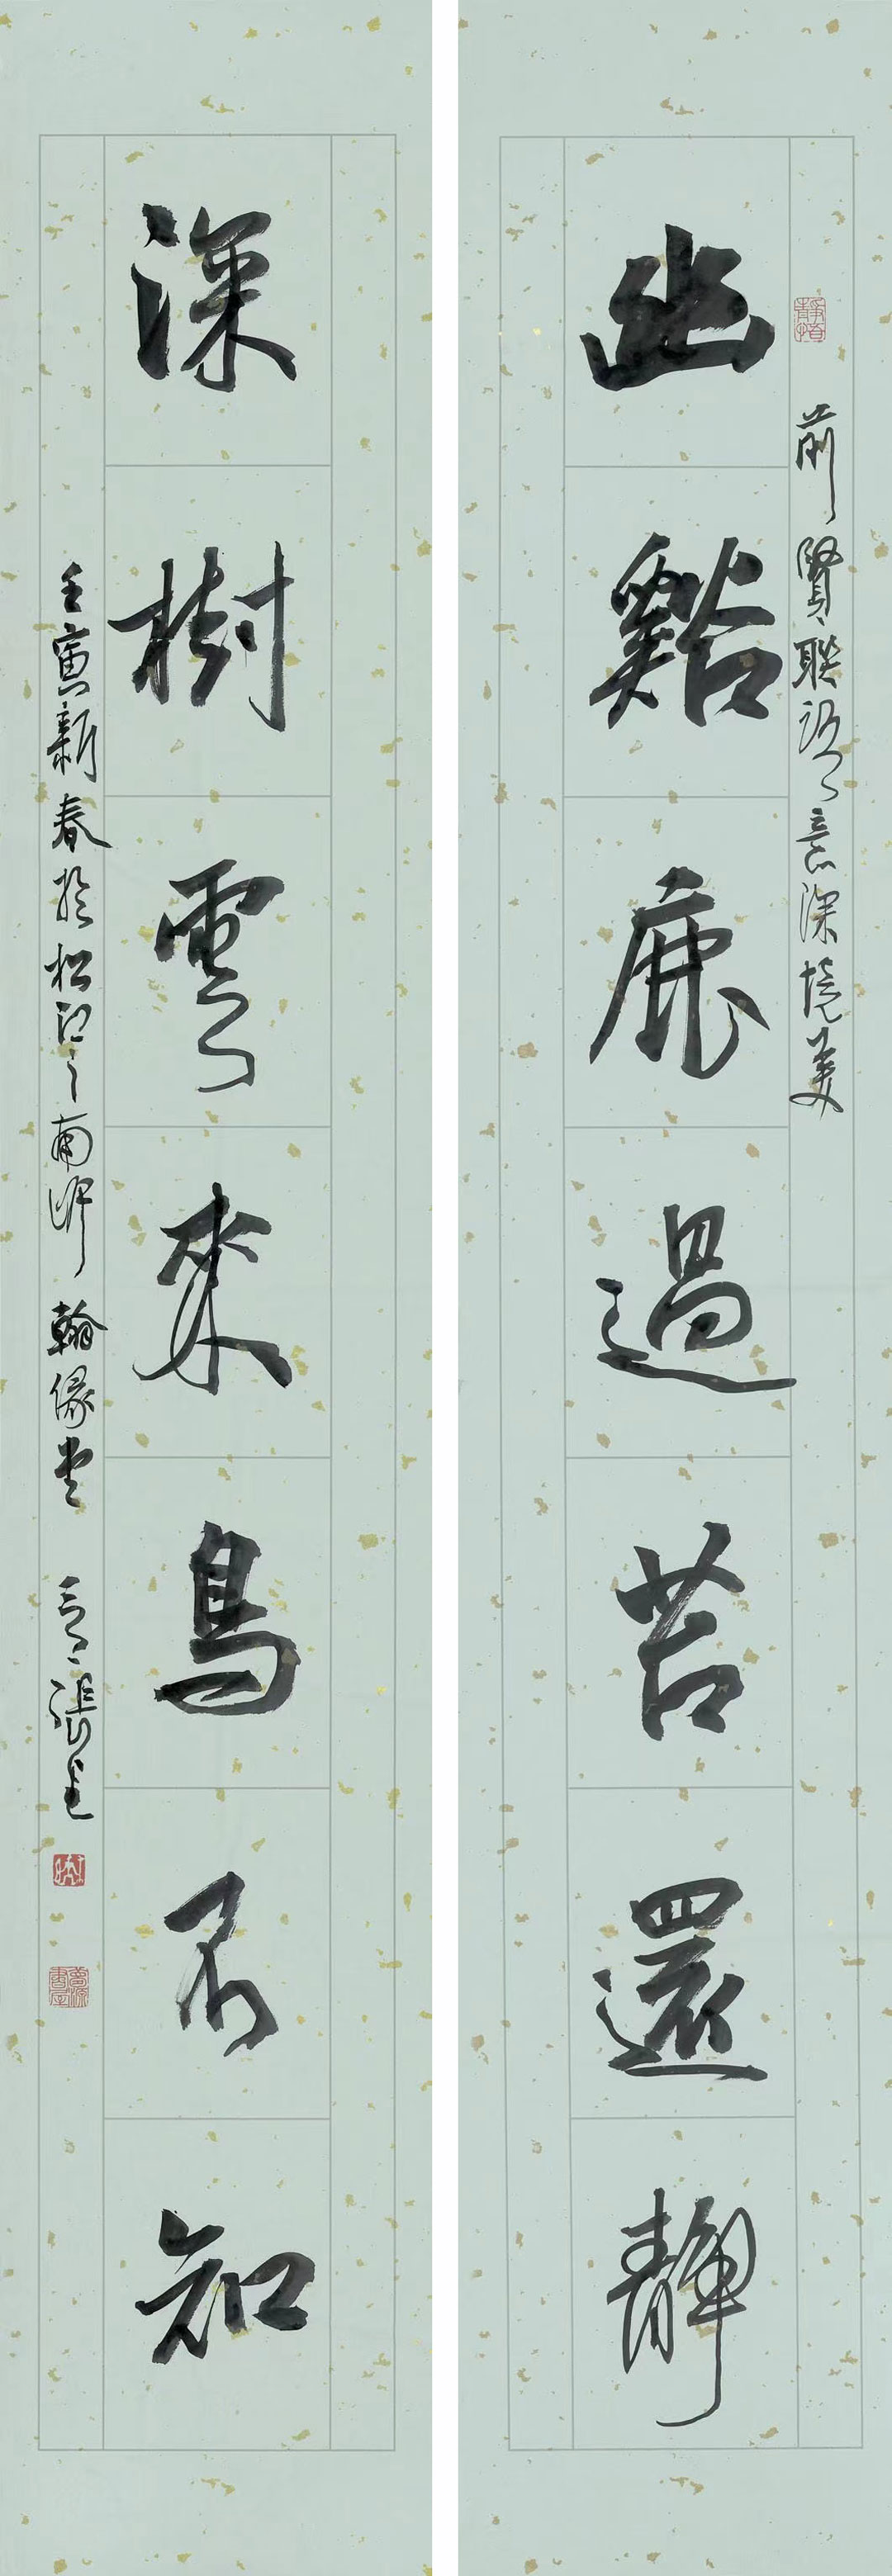 幽谿鹿過苔還靜
前賢聯語意深境美
深樹雲來鳥不知
壬寅新春於松江之南岸翰緣堂